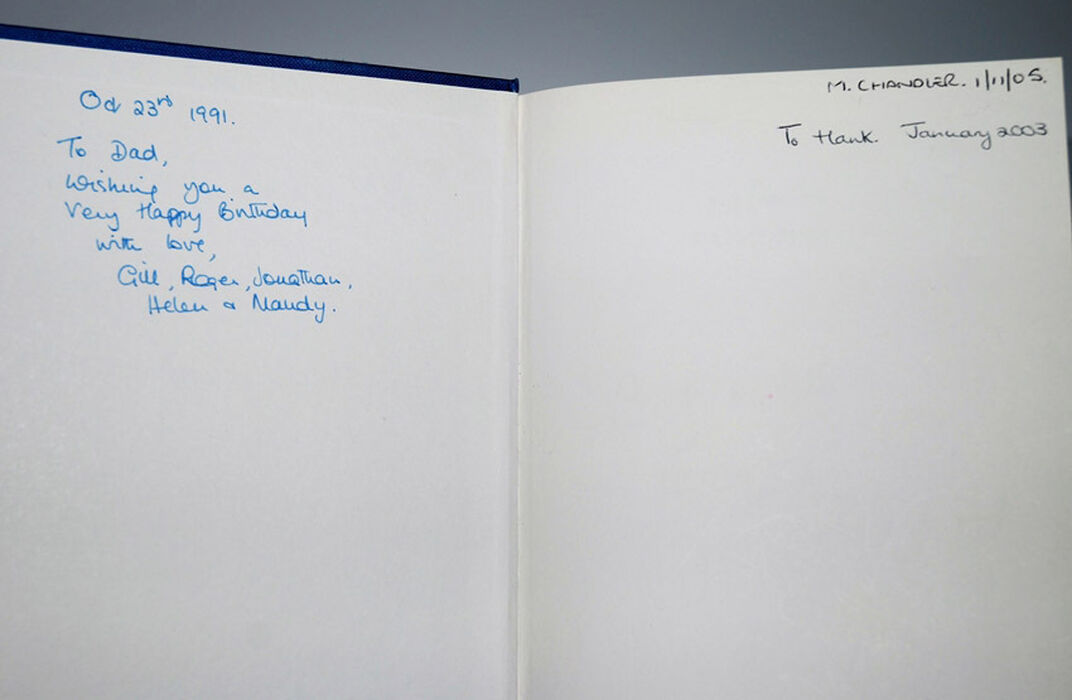 Oct 23rd 1991.
To Dad,
Wishing you a
Very Happy Birthday
with love,
Gill, Roger, Jonathan,
Helen & Mandy.
M. CHANDLER. 1/11/05.
To Hank. January 2003